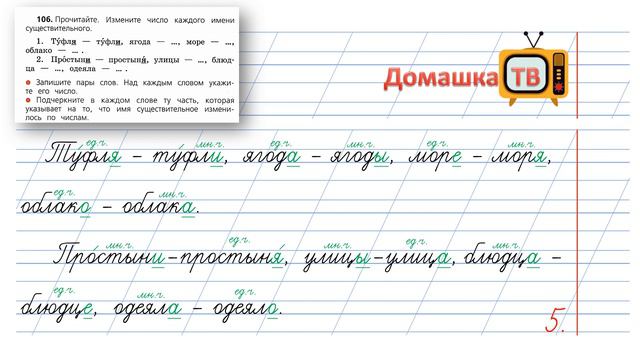 106. Прочитайте. Измените число каждого имени
существительного.
1. Ту́фля — ту́фли, ягода — ..., море — ...,
облако — ... .
2. Про́стыни — простыня́, улицы — ..., блюд-
ца — ..., одеяла — ... .
Запишите пары слов. Над каждым словом укажи-
те его число.
Подчеркните в каждом слове ту часть, которая
указывает на то, что имя существительное измени-
лось по числам.
Домашка ТВ
ед.ч. мн.ч. ед.ч. мн.ч. ед.ч. мн.ч.
Ту́фля – ту́фли, ягода – ягоды, море – моря,
ед.ч. мн.ч.
облако – облака.
мн.ч. ед.ч. мн.ч. ед.ч. мн.ч.
Про́стыни – простыня́, улицы – улица, блюдца –
ед.ч. мн.ч. ед.ч.
блюдце, одеяла – одеяло.
5.